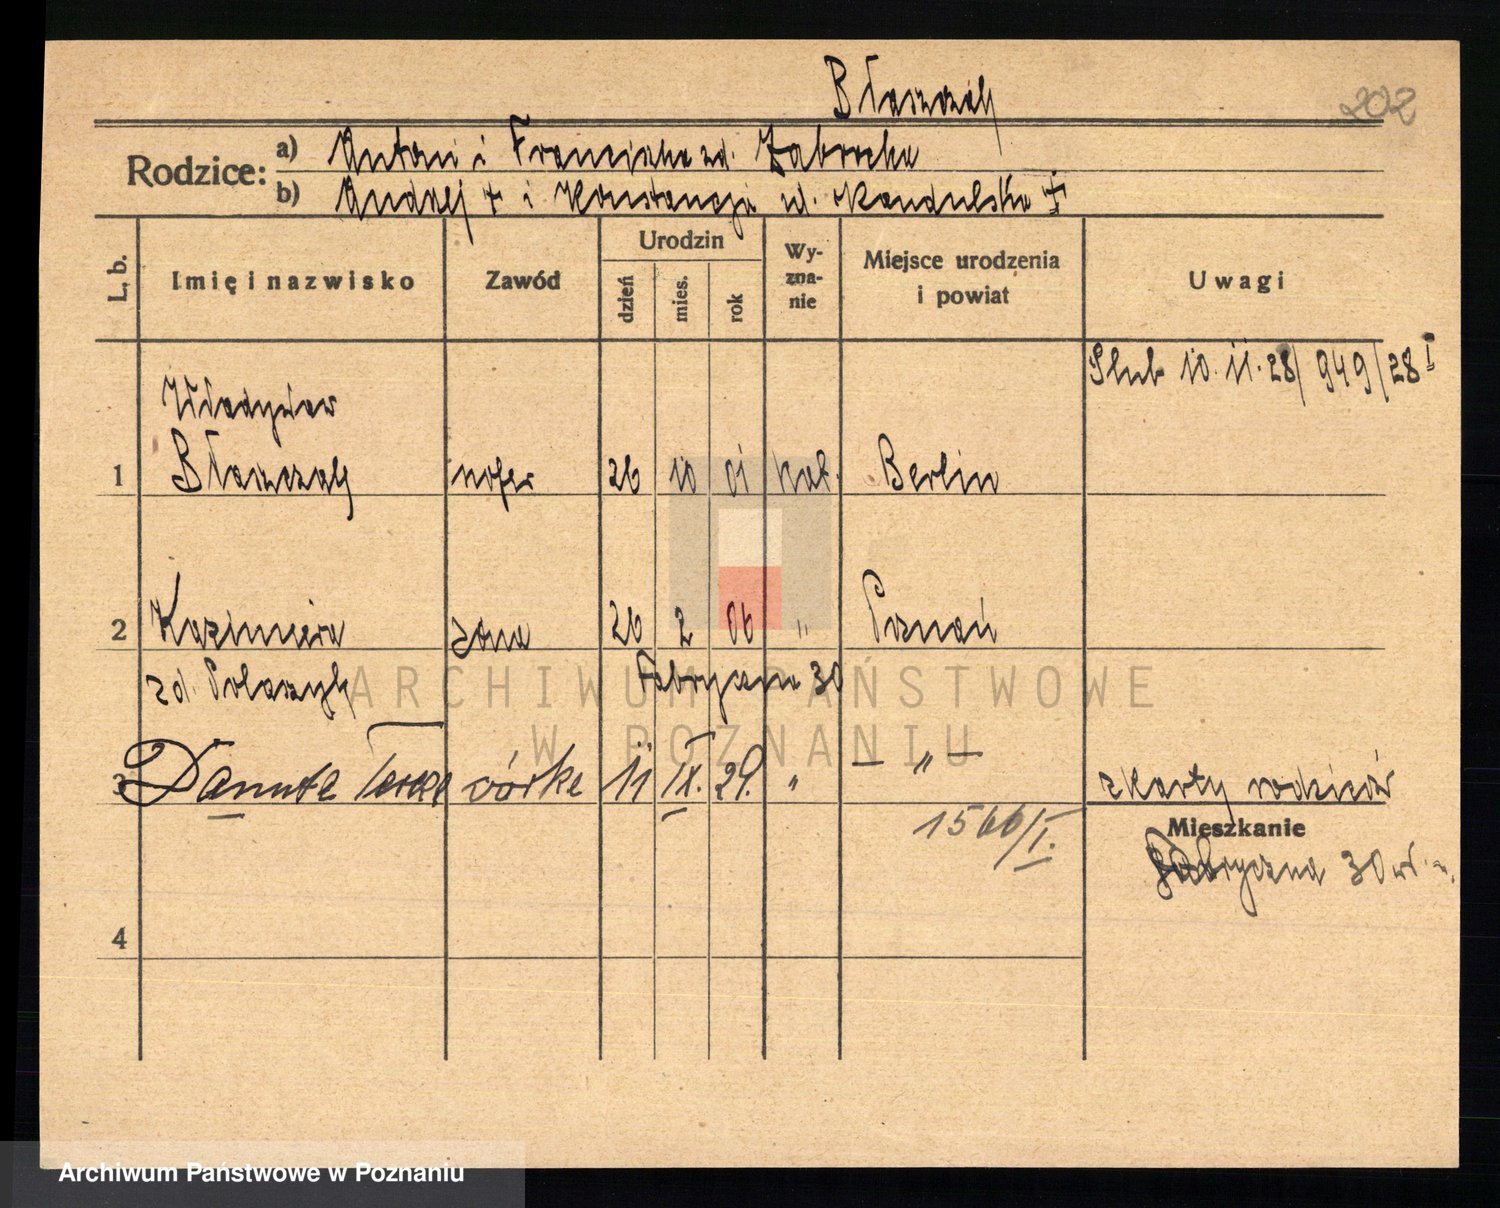 Błaszczak 202
Rodzice: a) Antoni i Franciszka zd. Zabrocka
b) Andrzej + i Konstancja zd. Kandulska +
L. b. Imię i nazwisko Zawód Urodzin dzień mies. rok Wy-zna-nie Miejsce urodzenia i powiat Uwagi
Ślub 10.11.28/949/28 I
Władysław
1 Błaszczak szofer 26 10 01 kat. Berlin
2 Kazimiera żona 26 2 06 " Poznań
zd. Polaszyk Fabryczna 30
3 Danuta Teresa córka 11 IX. 29. " — " — z karty rodziców
1566/I.
Mieszkanie
Fabryczna 30
4
ARCHIWUM PAŃSTWOWE
W POZNANIU
Archiwum Państwowe w Poznaniu